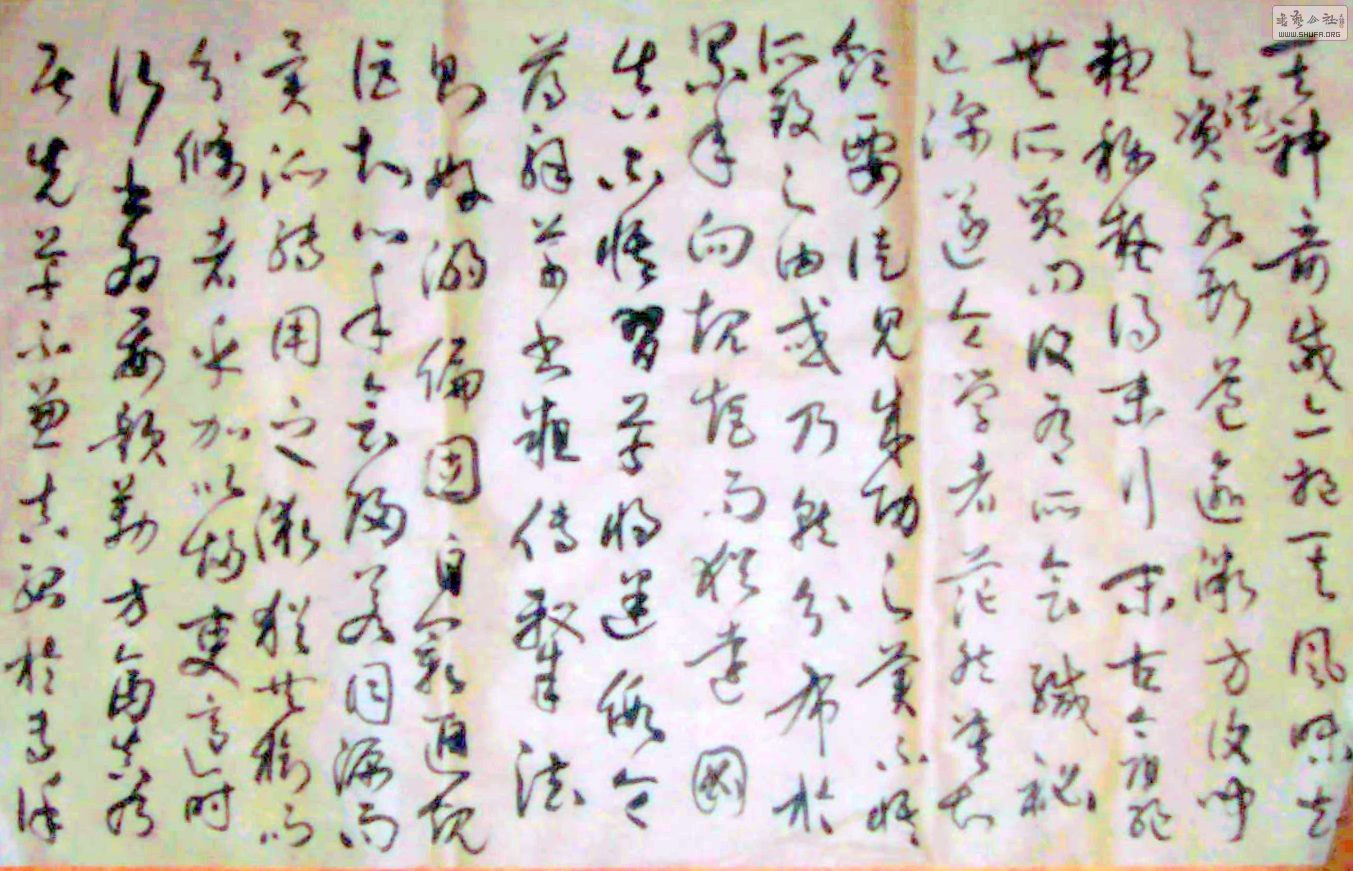 其神奇咸亦挹其風味去
之滋永斯道逾微方復聞
疑稱疑得末行末古今阻絕
無所質問設有所會緘秘
已深遂令學者茫然莫知
領要徒見成功之美不悟
所致之由或乃就分布於
累年向規矩而猶遠圖
真不悟習草將迷假令
薄解草書粗傳隸法
則好溺偏固自閡通規
詎知心手會歸若同源而
異派轉用之術猶共樹而
分條者乎加以趨變適時
行書為要題勒方畐真乃
居先草不兼真殆於專謹
書藝公社
WWW.SHUFA.ORG